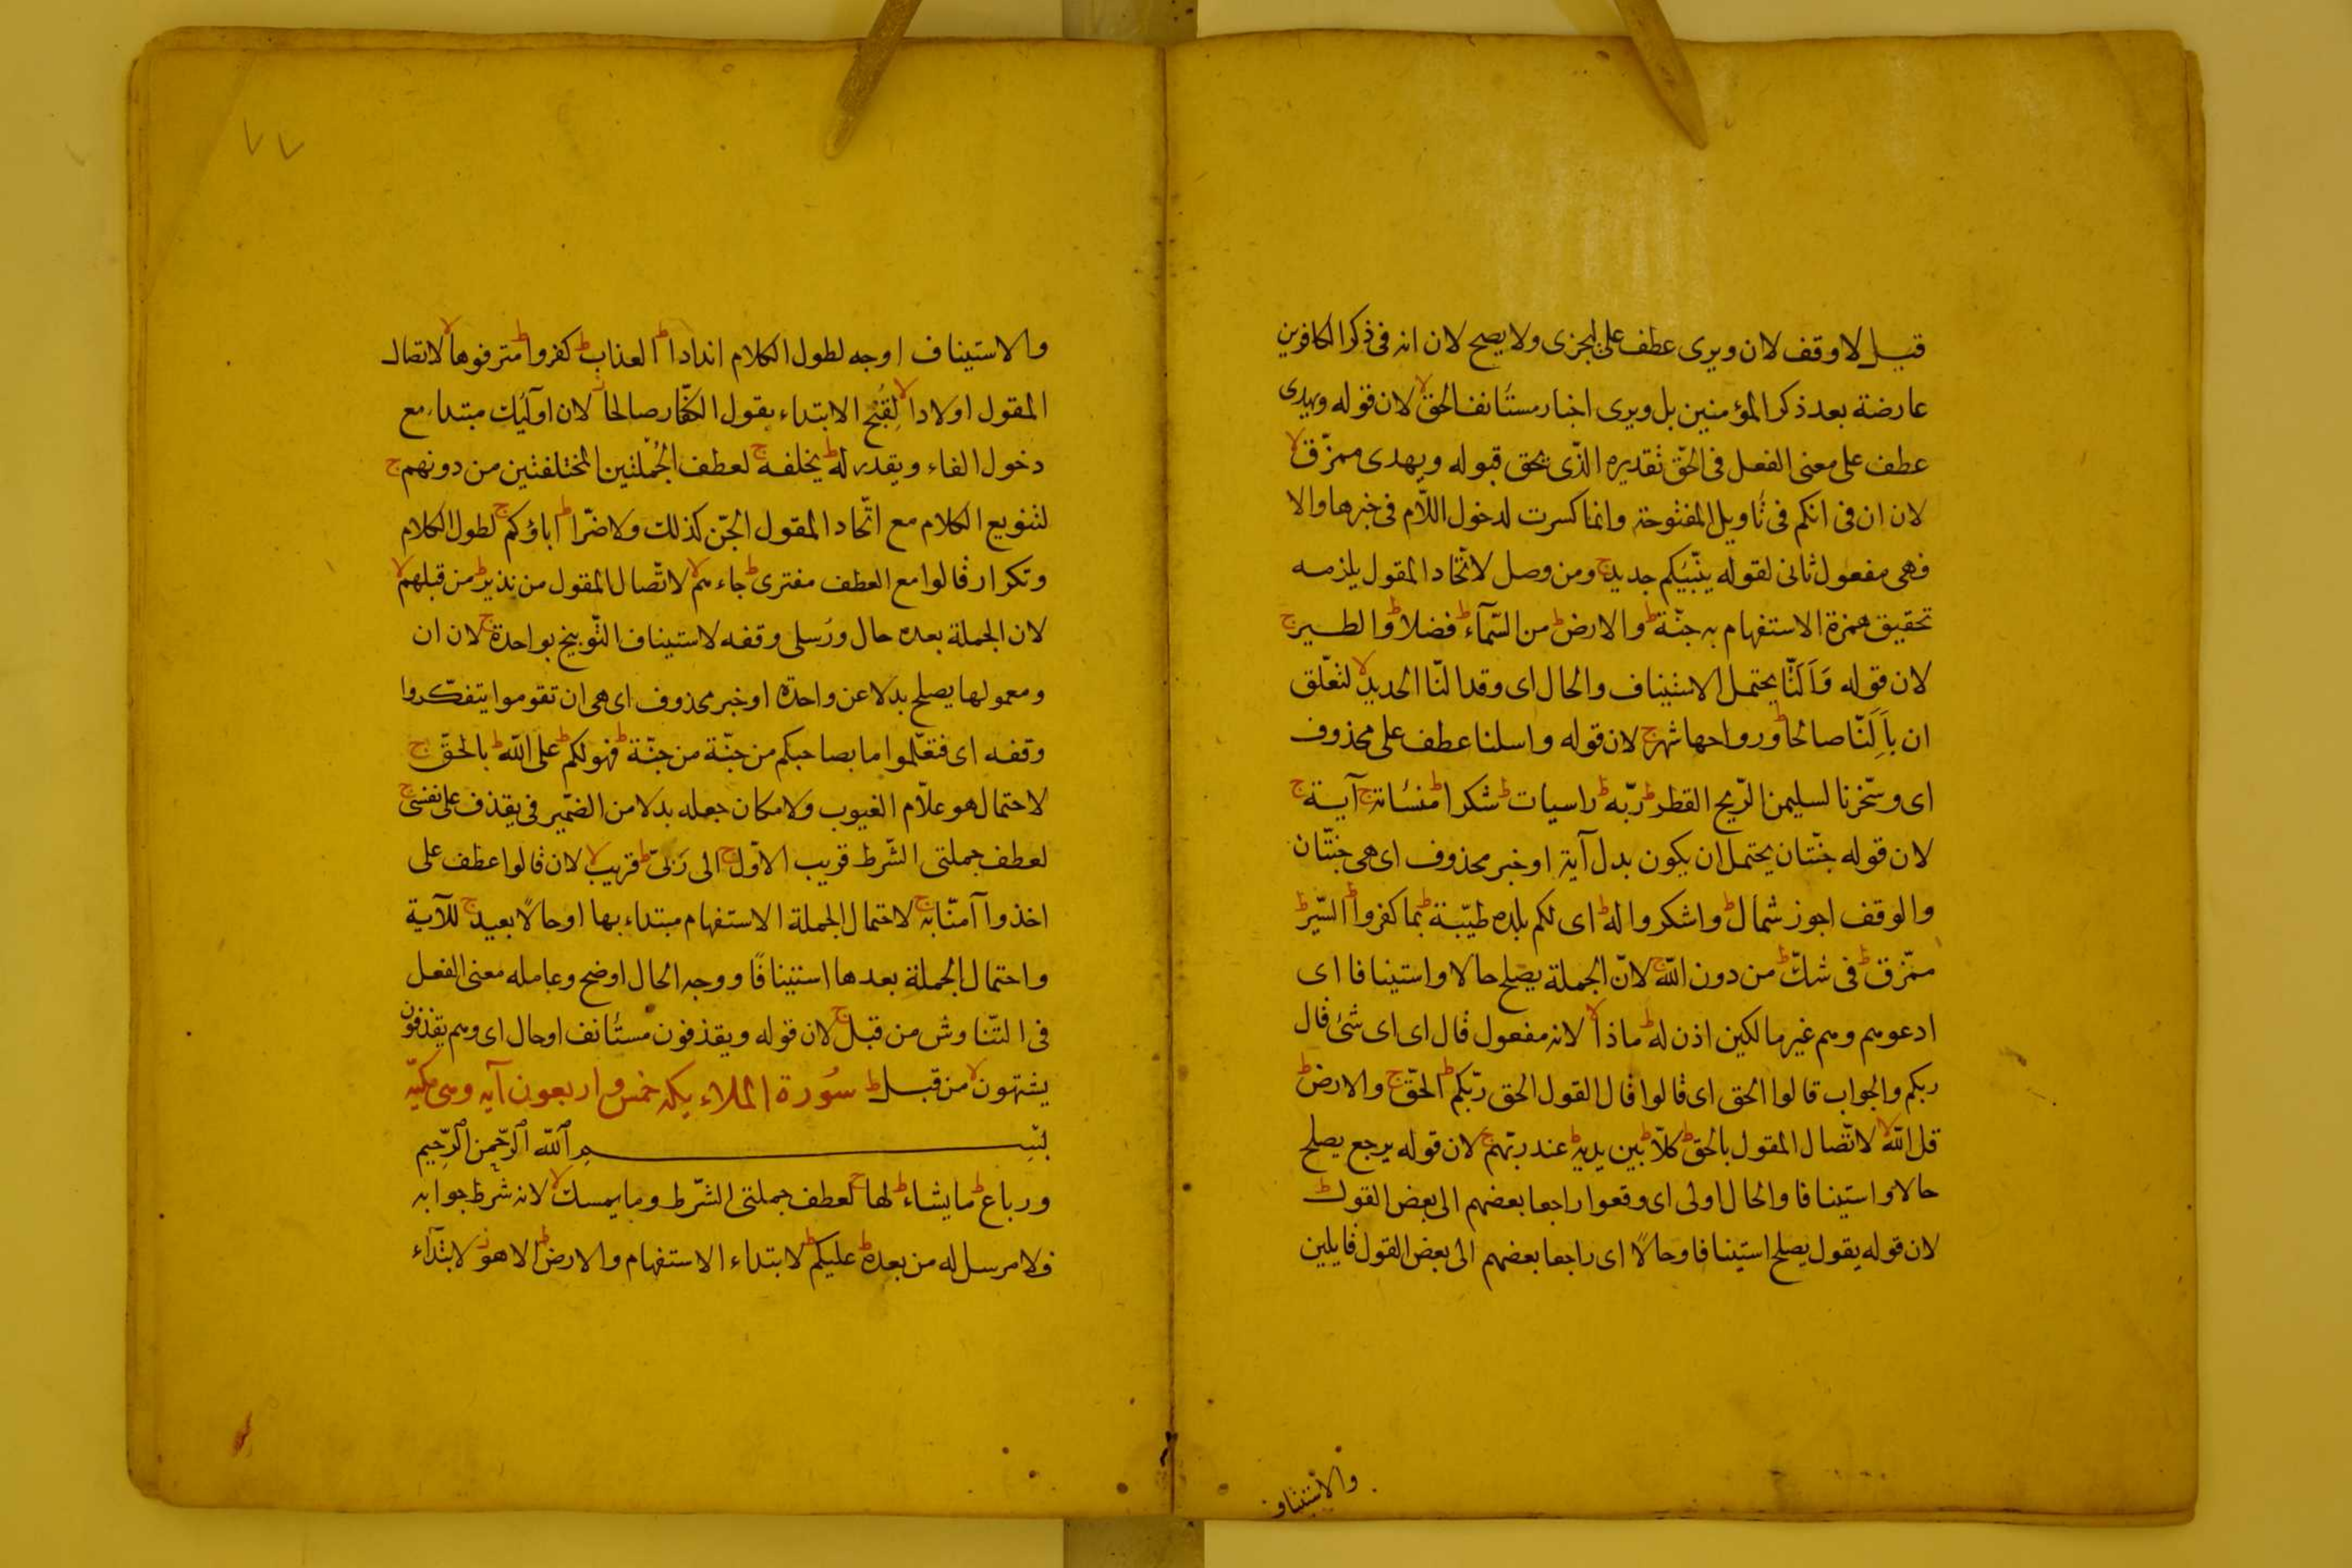 قبل لا وقف لان ويرى عطف على ليجزى ولا يصح لان انه فى ذكر الكافرين
عارضة بعد ذكر المؤمنين بل ويرى اخبار مستأنف الحق لا لان قوله ويهدى
عطف على معنى الفعل فى الحق تقديره الذى يحق قبوله ويهدى ممزّق لا
لان ان فى انكم فى تأويل المفتوحة وانما كسرت لدخول اللّام فى خبرها والا
فهى مفعول ثانى لقوله ينبّيكم جديد ج ومن وصل لاتّحاد المقول يلزمه
تحقيق همزة الاستفهام به جنّة ط والارض ط من السّمآء ط فضلا ط والطير ج
لان قوله وَاَلَنَّا يحتمل الاستيناف والحال اى وقد النّا الحديد لا لتعلّق
ان باَلَنّا صالحا ط ورواحها شهر ج لان قوله واسلنا عطف على محذوف
اى وسخّرنا لسليمن الرّيح القطر ط ربّه ط راسيات ط شكرا ط منسأته ج آية ج
لان قوله جنّتان يحتمل ان يكون بدل آية او خبر محذوف اى هى جنّتان
والوقف اجوز شمال ط واشكروا له ط اى لكم بلده طيّبة ط بما كفروا ط السّير ط
ممزّق ط فى شكّ ط من دون اللّه ج لانّ الجملة يصلح حالا واستينافا اى
ادعوهم وهم غير مالكين اذن له ط ماذا لا لانه مفعول قال اى اى شئ قال
ربكم والجواب قالوا الحق اى قالوا قال القول الحق ربّكم ط الحقّ ج والارض ط
قل اللّه لا لاتّصال المقول بالحق ط كلّا ط بين يديه ط عند ربّهم ج لان قوله يرجع يصلح
حالا واستينافا والحال اولى اى وقعوا راجعا بعضهم الى بعض القول ط
لان قوله يقول يصلح استينافا وحالًا اى راجعا بعضهم الى بعض القول قايلين
والاستيناف
٧٧
والاستيناف اوجه لطول الكلام اندادا ط العذاب ط كفروا ط مترفوها لا لاتصال
المقول اولادا لا لِقُبْح الابتداء بقول الكفّار صالحا لان اولئك مبتداء مع
دخول الفاء ويقدر له ط يخلفه ج لعطف الجملتين المختلفتين من دونهم ج
لتنويع الكلام مع اتّحاد المقول الجنّ كذلك ولا ضرّا ط اباؤكم ج لطول الكلام
وتكرار قالوا مع العطف مفترى ط جاءهم لا لاتّصال المقول من نذير ط من قبلهم لا
لان الجملة بعده حال ورُسلى وقفه لاستيناف التّوبيخ بواحدة ج لان ان
ومعمولها يصلح بدلا عن واحدة او خبر محذوف اى هى ان تقوموا يتفكّروا
وقفه اى فتعلّموا ما بصاحبكم من جنّة من جنّة ط فهو لكم ط على اللّه ط بالحقّ ج
لاحتمال هو علّام الغيوب ولامكان جعله بدلا من الضمير فى يقذف على نفسى ج
لعطف جملتى الشّرط قريب الاوّل ج الى رَبّىّ ط قريب لا لان قالوا عطف على
اخذوا آمنّا به ج لاحتمال الجملة الاستفهام مبتداء بها او حالًا بعيد ج للآية
واحتمال الجملة بعدها استينافًا ووجه الحال اوضح وعامله معنى الفعل
فى التّناوش من قبل ج لان قوله ويقذفون مستأنف او حال اى وهم يقذفون
يشتهون لا من قبل ط سُورة الملائكة خمس واربعون آيه وهى مكيّة
بسم اللّه الرّحمن الرّحيم
ورباع ط ما يشاء ط لها ج لعطف جملتى الشّرط وما يمسك لا لانه شرط جوابه
فلا مرسل له من بعده ط عليكم ط لابتداء الاستفهام والارض ط الا هو ز لابتدآء